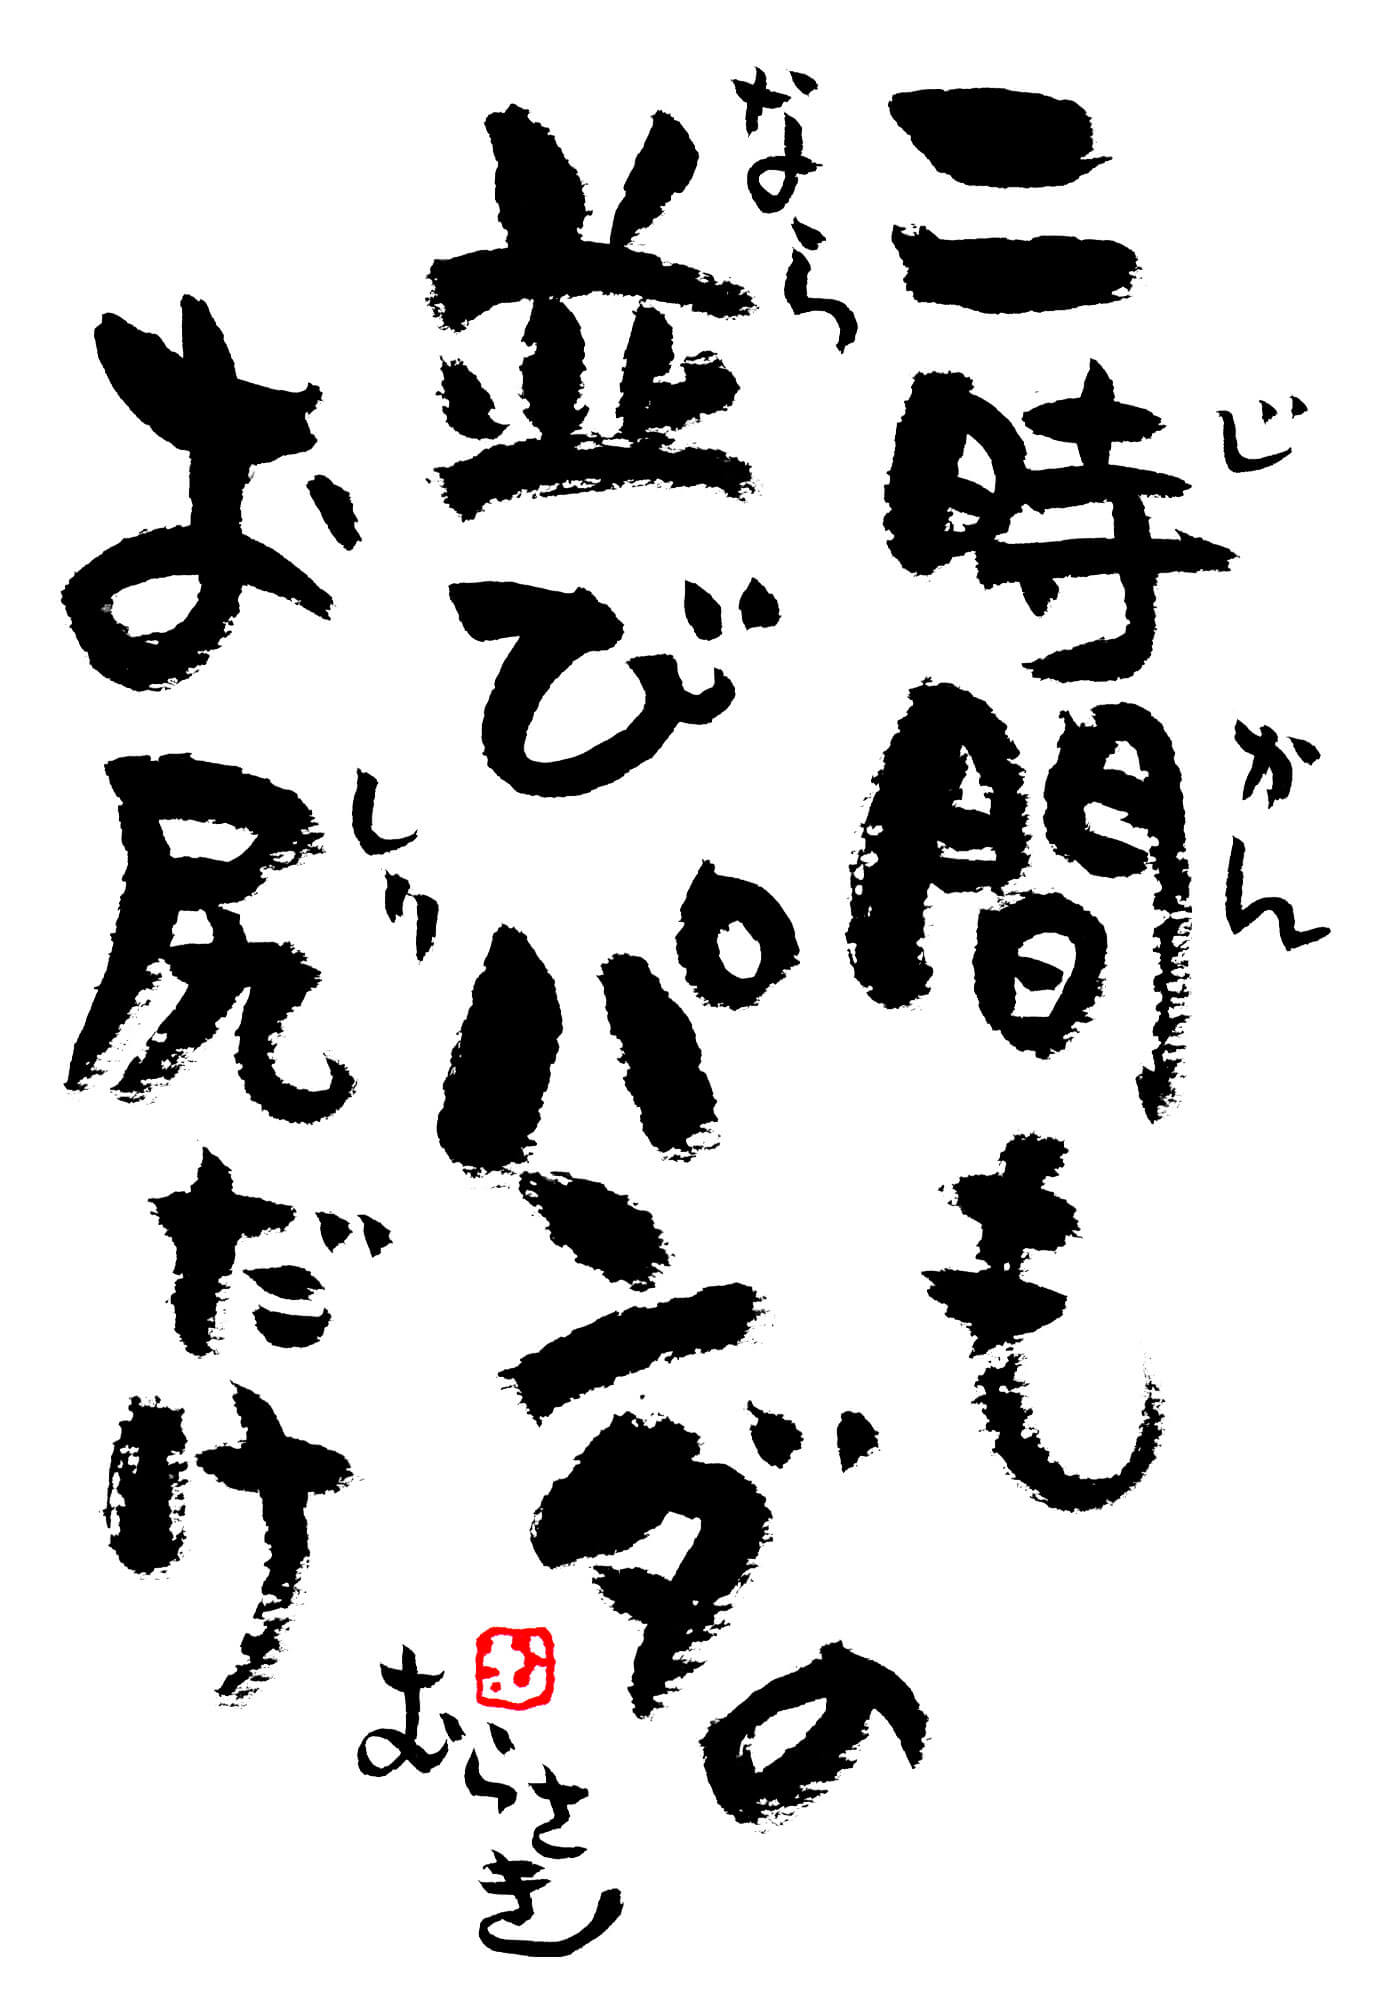 二時間も
じかん
並びパンダの
なら
お尻だけ
しり
むらさき
む